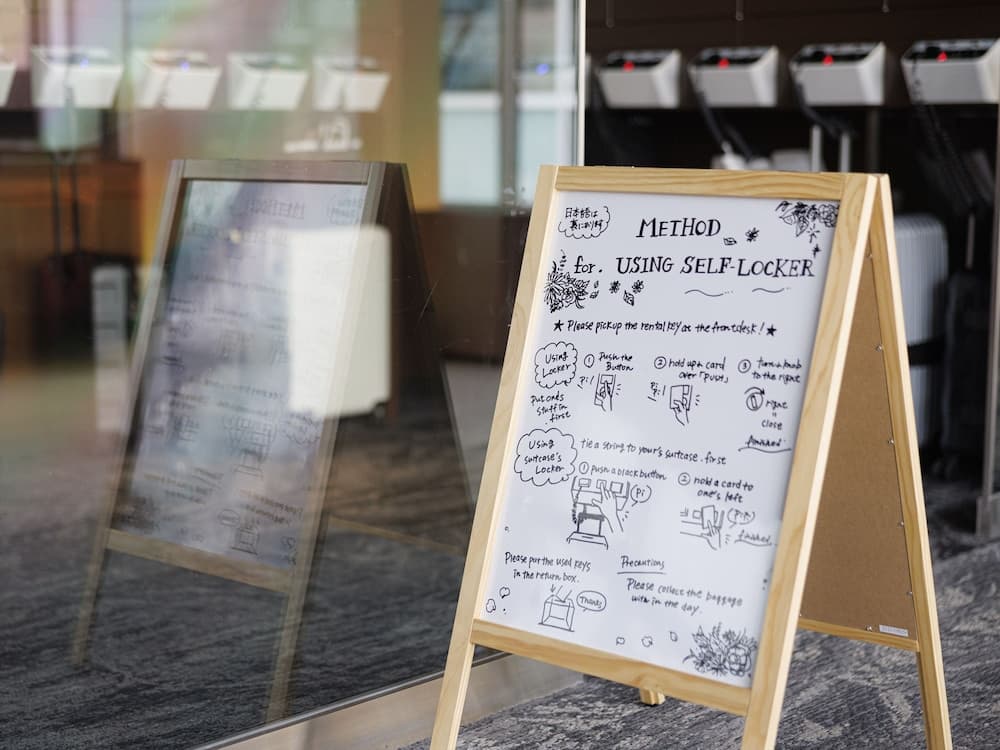 日本語は
裏にあります
METHOD
for. USING SELF-LOCKER
★ Please pick up the rental key at the frontdesk! ★
Using
Locker
put on ds
stuff in
first
① Push the
Button
Pi!
② hold up a card
over「push」
Pi!
③ Turn a knob
to the right
right
=
close
finished
Using
suitcase's
Locker
tie a string to your's suitcase. first
① push a black button
Pi
② hold a card to
one's left
Pi Pi
finished
Please put the used keys
in the return box.
Thanks
Precautions
Please collect the baggage
with in the day.
METHOD